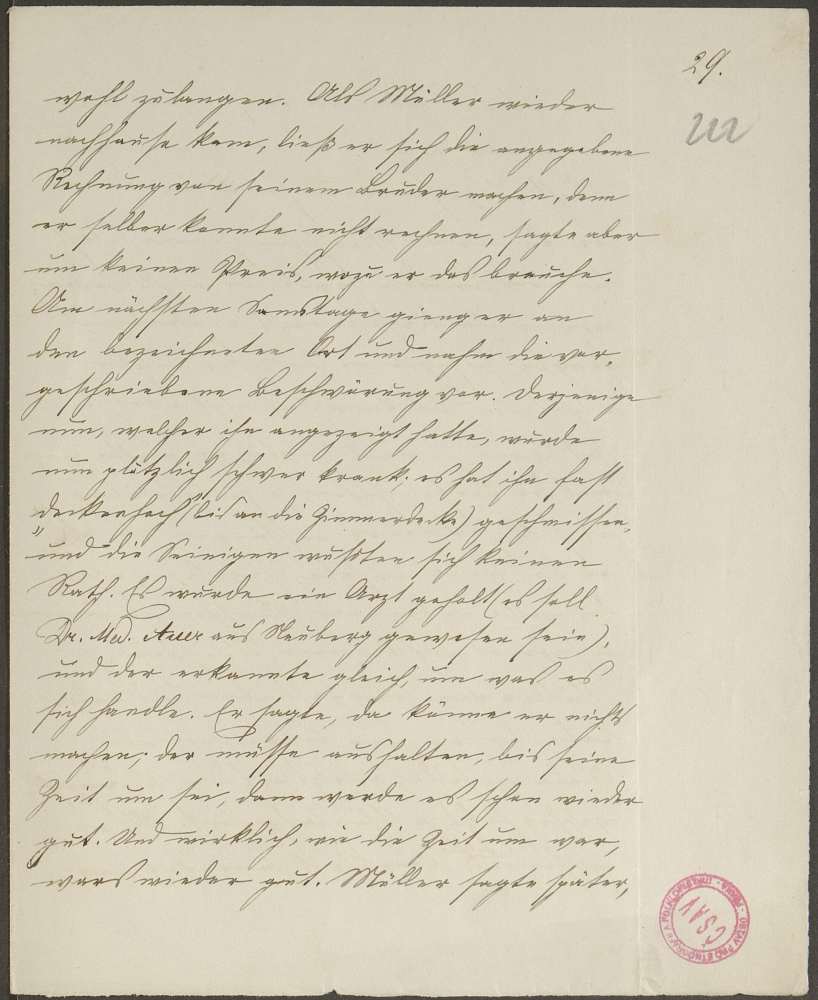 29.
212
wohl zulangen. Als Müller wieder
nachhause kam, ließ er sich die angegebene
Rechnung von seinem Bruder machen, denn
er selber konnte nicht rechnen, sagte aber
um keinen Preis, wozu er das brauche.
Am nächsten Samstage gieng er an
den bezeichneten Ort und nahm die vor-
geschriebene Beschwörung vor. Derjenige
nun, welcher ihn angezeigt hatte, wurde
nun plötzlich schwer krank; es hat ihn fast
deckenhoch (bis an die Zimmerdecke) geschmissen,
und die Seinigen wußten sich keinen
Rath. Es wurde ein Arzt geholt (es soll
Dr. Med. Auer aus Neuberg gewesen sein),
und der erkannte gleich, um was es
sich handle. Er sagte, da könne er nichts
machen; der müsse aushalten, bis seine
Zeit um sei, dann werde es schon wieder
gut. Und wirklich, wie die Zeit um war,
wars wieder gut. Müller sagte später,
ČSAV
ÚSTAV PRO ETNOGRAFII A FOLKLORISTIKU - PRAHA -